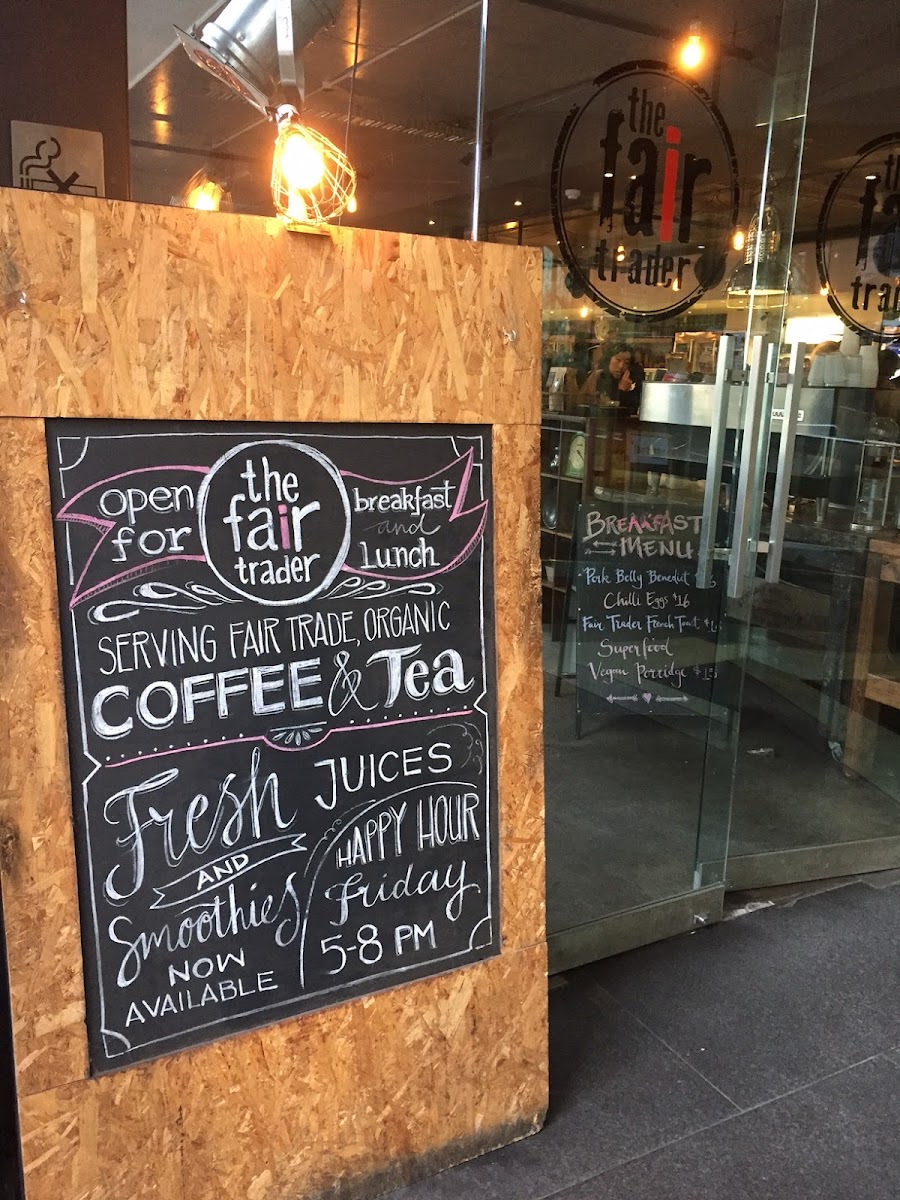 the
fair
trader
the
tra
open
for
the
fair
trader
breakfast
and
Lunch
SERVING FAIR TRADE, ORGANIC
COFFEE & Tea
Fresh JUICES
AND
Smoothies
NOW
AVAILABLE
HAPPY HOUR
Friday
5-8 PM
BREAKFAST
MENU
Pork Belly Benedict
Chilli Eggs $16
Fair Trader French Toast
Superfood
Vegan Porridge